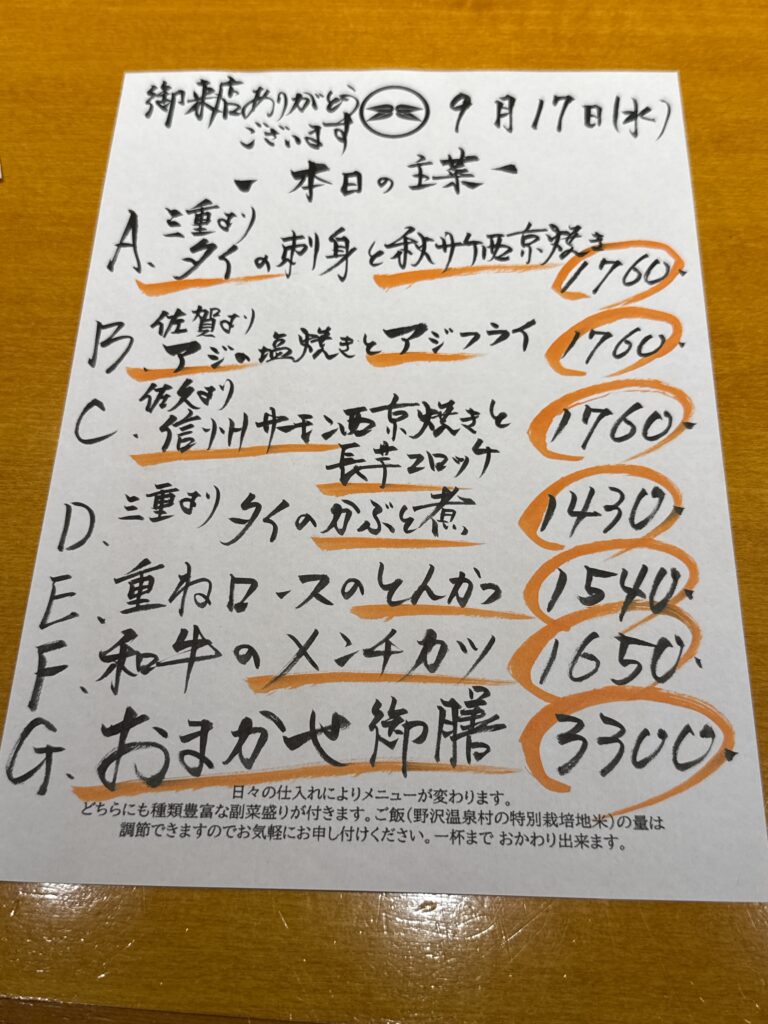 御来店ありがとう
ございます
9月17日(水)
- 本日の主菜 -
A. 三重より
タイの刺身と秋サケ西京焼き
1760.
B. 佐賀より
アジの塩焼きとアジフライ 1760.
C. 佐久より
信州サーモン西京焼きと
長芋コロッケ 1760.
D. 三重より タイのかぶと煮 1430.
E. 重ねロースのとんかつ 1540.
F. 和牛のメンチカツ 1650.
G. おまかせ御膳 3300.
日々の仕入れによりメニューが変わります。
どちらにも種類豊富な副菜盛りが付きます。ご飯(野沢温泉村の特別栽培地米)の量は
調節できますのでお気軽にお申し付けください。一杯まで おかわり出来ます。